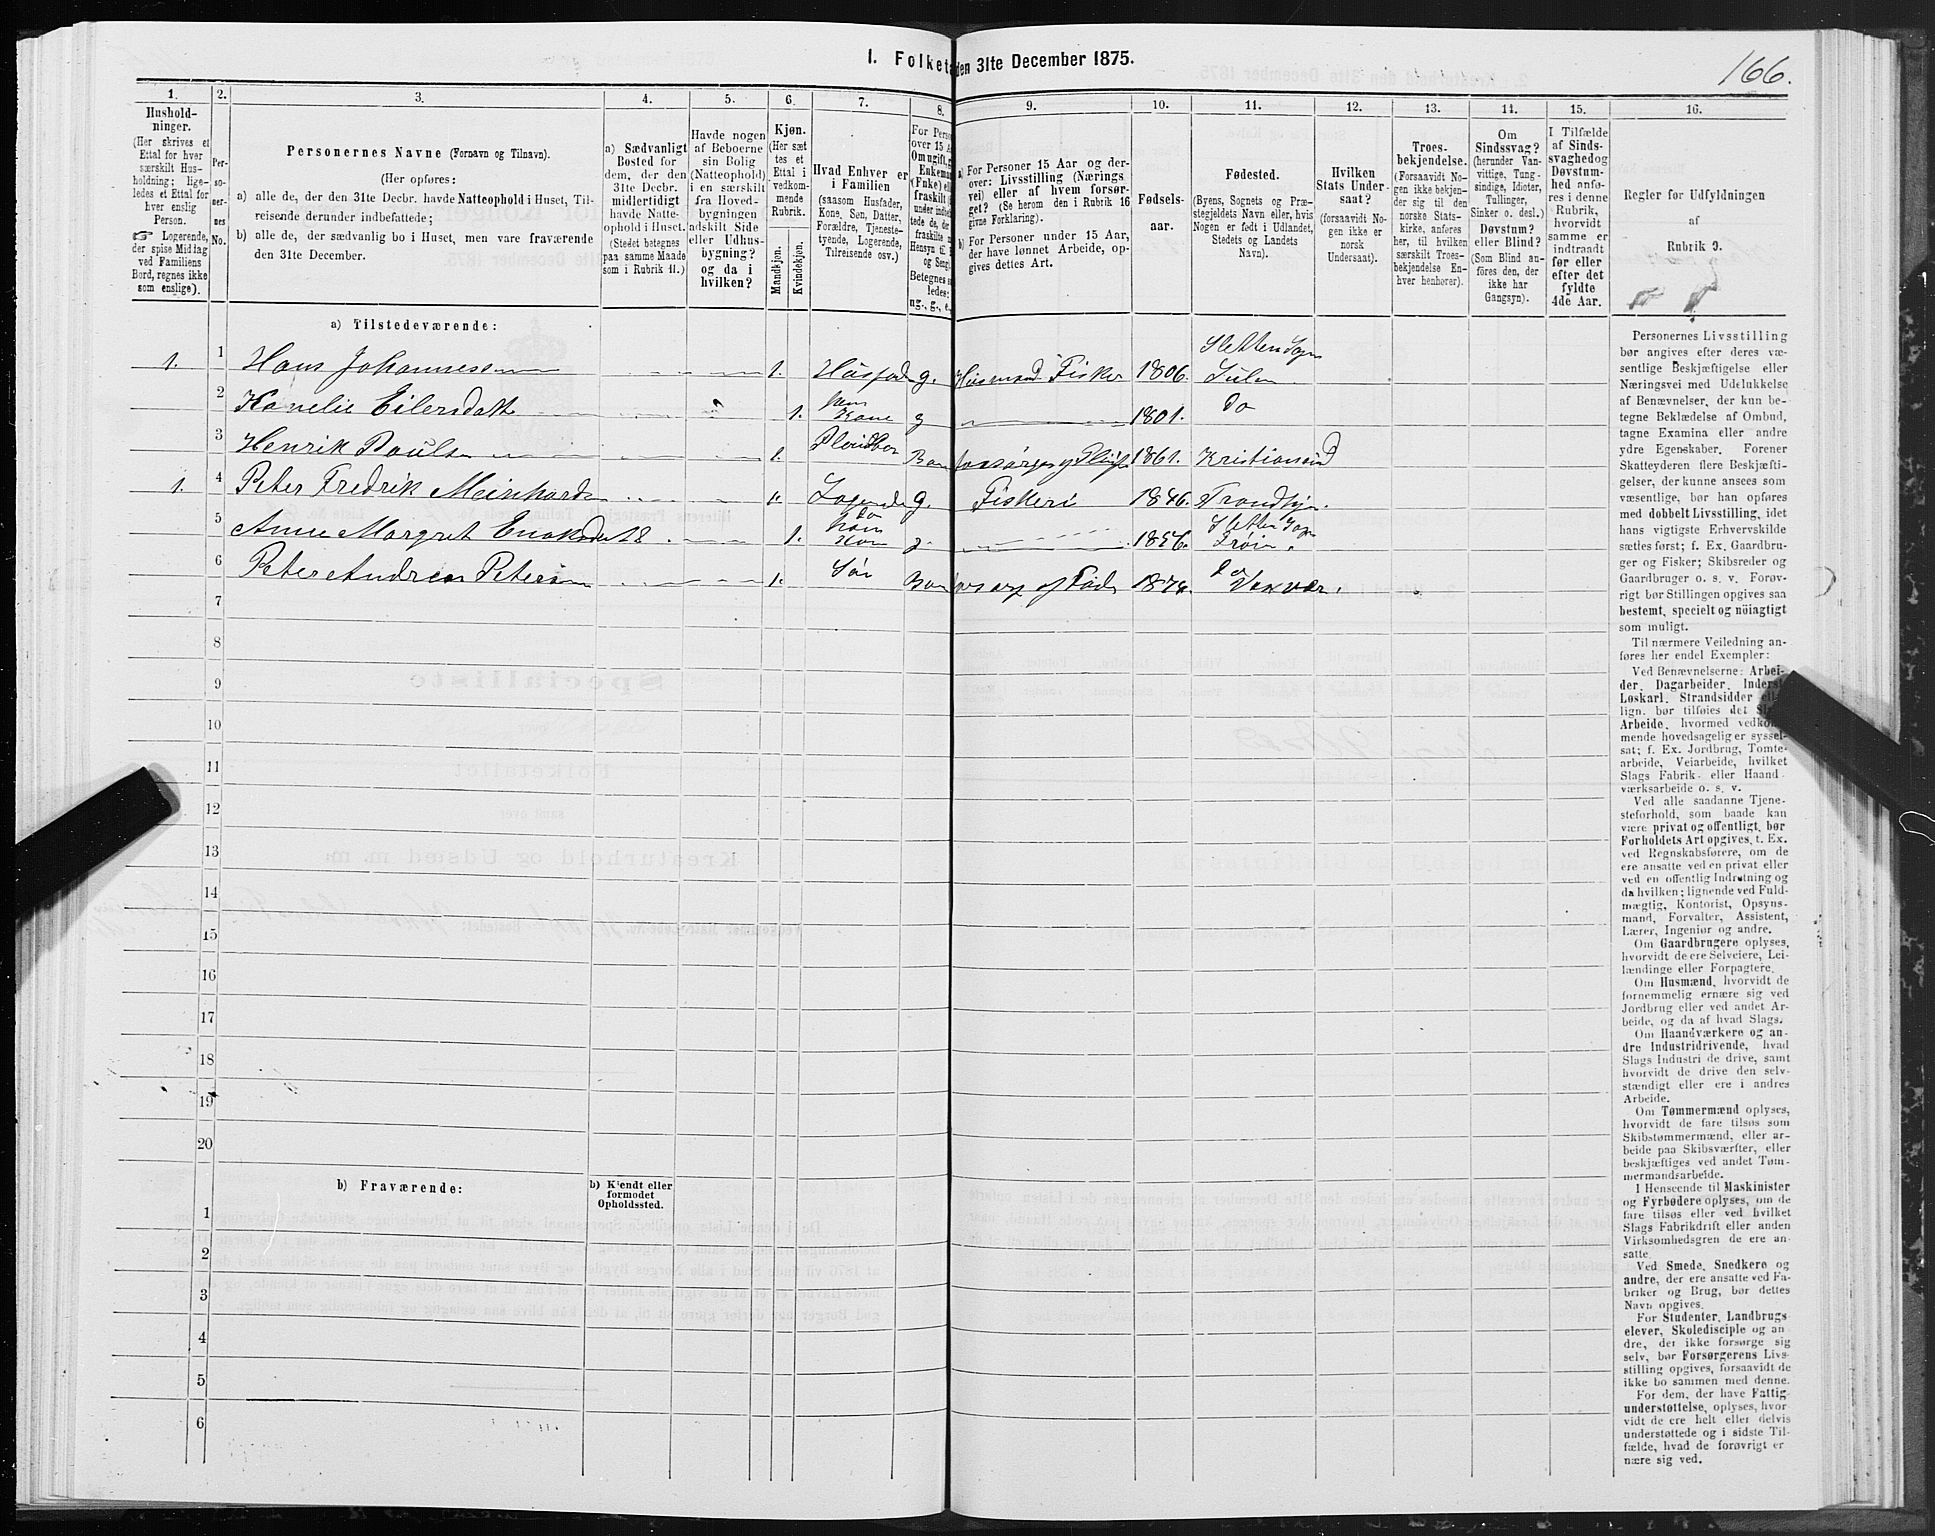 1. Folketa den 31te December 1875.
166.
1.
Husholdninger.
(Her skrives et Ettal for hver særskilt Husholdning; ligeledes et Ettal for hver enslig Person.
☞ Logerende, der spise Middag ved Familiens Bord, regnes ikke som enslige).
2.
Personernes No.
3.
Personernes Navne (Fornavn og Tilnavn).
(Her opføres:
a) alle de, der den 31te Decbr. havde Natteophold i Huset, Tilreisende derunder indbefattede;
b) alle de, der sædvanlig bo i Huset, men vare fraværende den 31te December.
4.
a) Sædvanligt Bosted for dem, der den 31te Decbr. midlertidigt havde Natteophold i Huset.
(Stedet betegnes paa samme Maade som i Rubrik 11.)
5.
Havde nogen af Beboerne sin Bolig (Natteophold) i en særskilt fra Hovedbygningen adskilt Side eller Udhusbygning? og da i hvilken?
6.
Kjøn.
(Her sættes et Ettal i vedkommende Rubrik.
Mandkjøn.
Kvindekjøn.
7.
Hvad Enhver er i Familien
(saasom Husfader, Kone, Søn, Datter, Forældre, Tjenestetyende, Logerende, Tilreisende osv.)
8.
9.
a) For Personer 15 Aar og derover: Livsstilling (Næringsvei) eller af hvem forsørget? (Se herom den i Rubrik 16 givne Forklaring).
b) For Personer under 15 Aar, der have lønnet Arbeide, opgives dettes Art.
10.
Fødselsaar.
11.
Fødested.
(Byens, Sognets og Præstegjeldets Navn eller, hvis Nogen er født i Udlandet, Stedets og Landets Navn).
12.
Hvilken Stats Undersaat?
(forsaavidt Nogen ikke er norsk Undersaat).
13.
Troesbekjendelse.
(Forsaavidt Nogen ikke bekjender sig til den norske Statskirke, anføres her, til hvilken særskilt Troesbekjendelse Enhver henhører).
14.
Om Sindssvag?
(herunder Vanvittige, Tungsindige, Idioter, Tullinger, Sinker o. desl.)
Døvstum? eller Blind?
(Som Blind anføres den, der ikke har Gangsyn).
15.
I Tilfælde af Sindssvaghedog Døvstumhed anføres i denne Rubrik, hvorvidt samme er indtraadt før eller efter det fyldte 4de Aar.
16.
Regler for Udfyldningen
af
Rubrik 9.
a) Tilstedeværende:
1. 1 Hans Johannessen 1. Husfader g. Husmand Fisker 1806. Sletten Sogn Sulen
2 Kanelie Eilersdatt 1. hans Kone g 1801. Do
3 Henrik Poulsen 1. Pleiebarn 1861. Kristiansund
1. 4 Peter Fredrik Meinhardsen 1. Logerende g. Fiskeri 1846. Trondhjem.
5 Anne Margret Enoksdatt 28 1. 1856. Sletten Sogn Frøien.
6 Peter Andreas Petersen 1. Søn 1874. Vaxvær.
7
8
9
10
11
12
13
14
15
16
17
18
19
20
b) Fraværende:
b) Kjendt eller formodet Opholdssted.
1
2
3
4
5
6
Personernes Livsstilling
bør angives efter deres væ-
sentlige Beskjæftigelse eller
Næringsvei med Udelukkelse
af Benævnelser, der kun be-
tegne Beklædelse af Ombud,
tagne Examina eller andre
ydre Egenskaber. Forener
Skatteyderen flere Beskjæfti-
gelser, der kunne ansees som
væsentlige, bør han opføres
med dobbelt Livsstilling, idet
hans vigtigste Erhvervskilde
sættes først; f. Ex. Gaardbru-
ger og Fisker; Skibsreder og
Gaardbruger o. s. v. Forøv-
rigt bør Stillingen opgives saa
bestemt, specielt og nöiagtigt
som muligt.
Til nærmere Veiledning an-
føres her endel Exempler:
Ved Benævnelserne: Arbei-
der, Dagarbeider, Inderst
Løskarl, Strandsidder eller
lign. bør tilføies det Slags
Arbeide, hvormed vedkom-
mende hovedsagelig er syssel-
sat; f. Ex. Jordbrug, Tomte-
arbeide, Veiarbeide, hvilket
Slags Fabrik- eller Haand-
værksarbeide o. s. v.
Ved alle saadanne Tjene-
steforhold, som baade kan
være privat og offentligt, bør
Forholdets Art opgives, t. Ex.
ved Regnskabsførere, om de
ere ansatte ved en privat eller
ved en offentlig Indretning og
da hvilken; lignende ved Fuld-
mægtig, Kontorist, Opsyns-
mand, Forvalter, Assistent,
Lærer, Ingeniør og andre.
Om Gaardbrugere oplyses,
hvorvidt de ere Selveiere, Lei-
lændinge eller Forpagtere.
Om Husmænd, hvorvidt de
fornemmelig ernære sig ved
Jordbrug eller ved andet Ar-
beide, og da af hvad Slags.
Om Haandværkere og an-
dre Industridrivende, hvad
Slags Industri de drive, samt
hvorvidt de drive den selv-
stændigt eller ere i andres
Arbeide.
Om Tømmermænd oplyses,
hvorvidt de fare tilsøs som
Skibstømmermænd, eller ar-
beide paa Skibsværfter, eller
beskjæftiges ved andet Tøm-
mermandsarbeide.
I Henseende til Maskinister
og Fyrbødere oplyses, om de
fare tilsøs eller ved hvilket
Slags Fabrikdrift eller anden
Virksomhedsgren de ere an-
satte.
Ved Smede, Snedkere og
andre, der ere ansatte ved Fa-
briker og Brug, bør dettes
Navn opgives.
For Studenter, Landbrugs-
elever, Skoledisciple og an-
dre, der ikke forsørge sig
selv, bør Forsørgerens Livs-
stilling opgives, forsaavidt de
ikke bo sammen med denne.
For dem, der have Fattig-
understøttelse, oplyses, hvor-
vidt de ere helt eller delvis
understøttede og i sidste Til-
fælde, hvad de forøvrigt er-
nære sig ved.